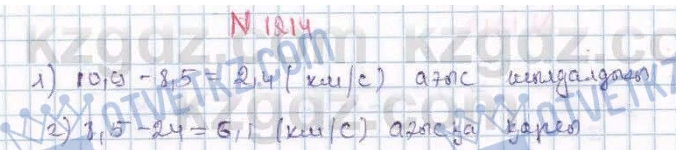 N 1214
1) 10,9 - 8,5 = 2,4 (км/с) ағыс жылдамдығы
2) 8,5 - 24 = 6,1 (км/с) ағысқа қарсы
kzgdz.com
OTVETKZ.COM